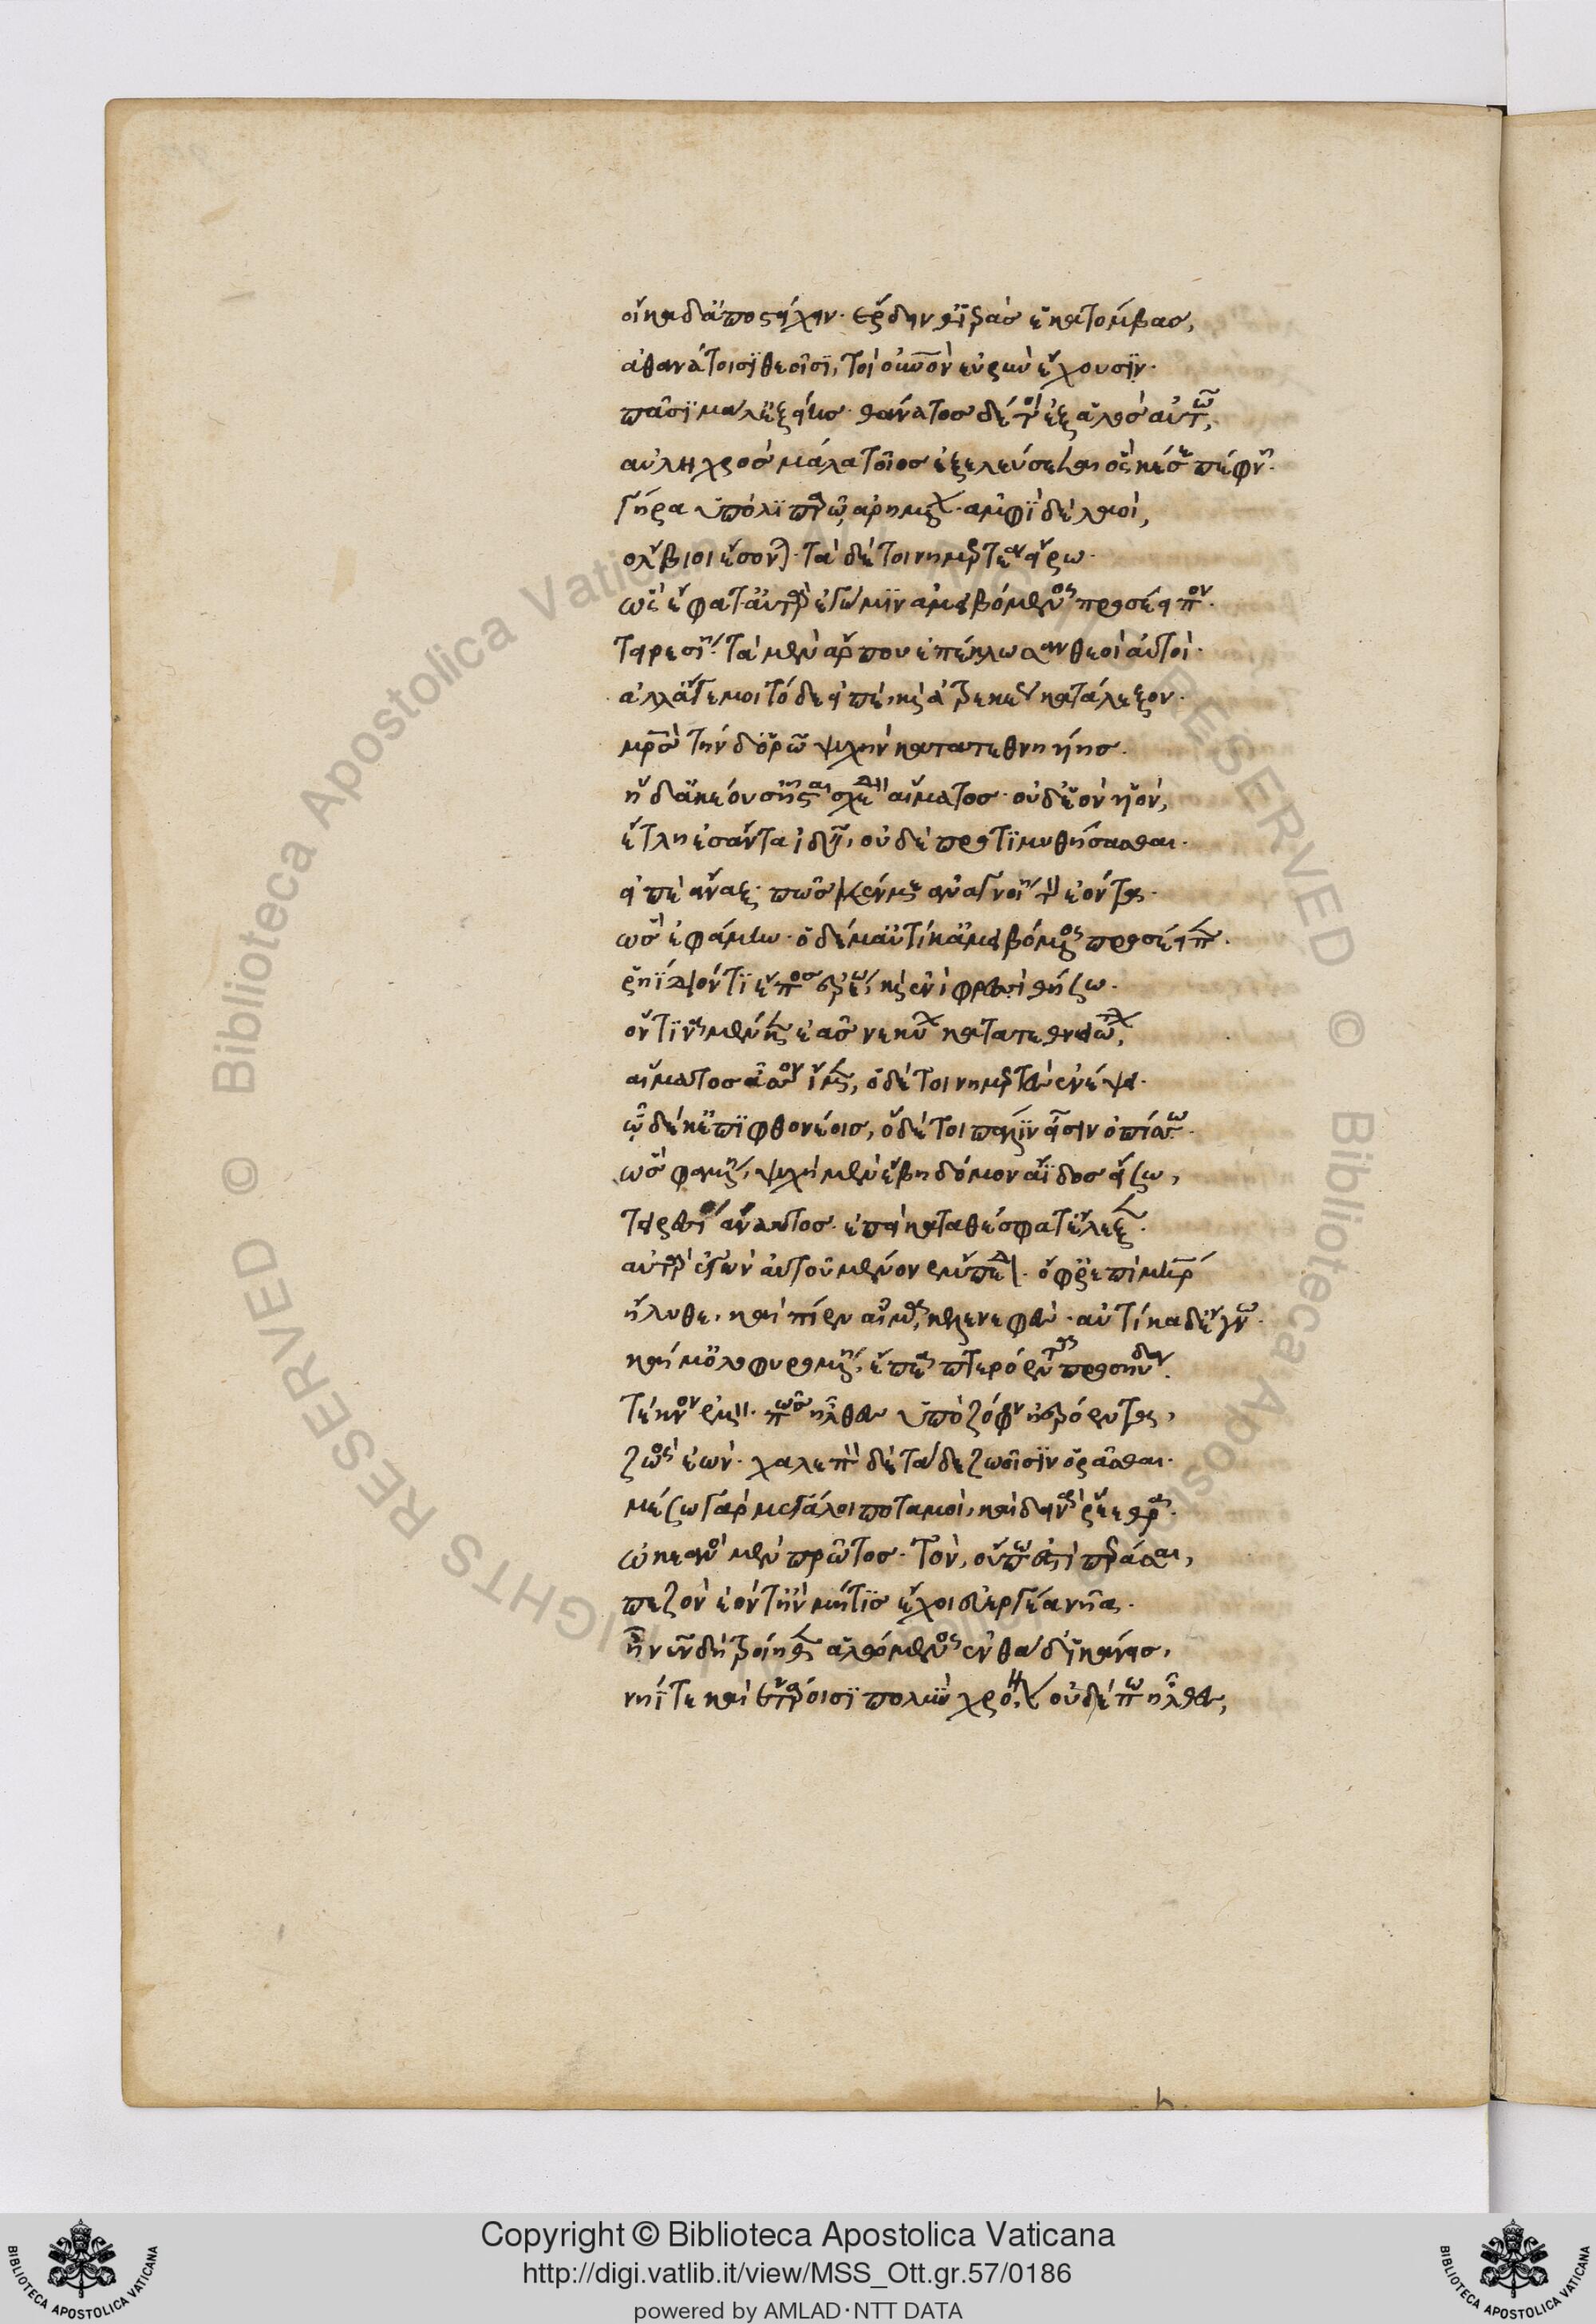 οἴκαδ' ἀποστείχειν· ἔρδειν θ' ἱερὰς ἑκατόμβας,
ἀθανάτοισι θεοῖσι, τοὶ οὐρανὸν εὐρὺν ἔχουσιν·
πᾶσι μάλ' ἑξείης· θάνατος δέ τοι ἐξ ἁλὸς αὐτῷ,
ἀβληχρὸς μάλα τοῖος ἐλεύσεται ὅς κέ σε πέφνῃ·
γήρα ὕπο λιπαρῷ ἀρημένον· ἀμφὶ δὲ λαοὶ,
ὄλβιοι ἔσονται· τὰ δέ τοι νημερτέα εἴρω·
ὣς ἔφατ' αὐτὰρ ἐγώ μιν ἀμειβόμενος προσέειπον·
Τειρεσίη· τὰ μὲν ἄρ που ἐπέκλωσαν θεοὶ αὐτοί·
ἀλλ' ἄγε μοι τόδε εἰπὲ, καὶ ἀτρεκέως κατάλεξον·
μητρὸς τήνδ' ὁρόω ψυχὴν κατατεθνηυίης·
ἡ δ' ἀκέουσ' ἧσται σχεδὸν αἵματος· οὐδ' ἑὸν υἱὸν,
ἔτλη ἐσάντα ἰδεῖν, οὐδὲ προτιμυθήσασθαι·
εἰπὲ ἄναξ· πῶς κέν με ἀναγνοίη τὸν ἐόντα·
ὣς ἐφάμην· ὁ δέ μ' αὐτίκ' ἀμειβόμενος προσέειπε·
ῥηΐδιόν τι ἔπος ἐρέω, καὶ ἐνὶ φρεσὶ θήσω·
ὅντινα μέν κεν ἐᾷς νεκύων κατατεθνειώτων,
αἵματος ἆσσον ἴμεν, ὁ δέ τοι νημερτὲς ἐνίψει·
ᾧ δέ κ' ἐπιφθονέοις, ὁ δέ τοι πάλιν εἶσιν ὀπίσσω·
ὣς φαμένη, ψυχὴ μὲν ἔβη δόμον ἄϊδος εἴσω,
Τειρεσίαο ἄνακτος· ἐπεὶ κατὰ θέσφατ' ἔλεξε·
αὐτὰρ ἐγὼν αὐτοῦ μένον ἔμπεδον· ὄφρ' ἐπὶ μήτηρ
ἤλυθε, καὶ πίεν αἷμα, κελαινεφές· αὐτίκα δ' ἔγνω·
καί μ' ὀλοφυρομένη, ἔπεα πτερόεντα προσηύδα·
τέκνον ἐμὸν· πῶς ἦλθες ὑπὸ ζόφον ἠερόεντα,
ζωὸς ἐών· χαλεπὸν δὲ τάδε ζωοῖσιν ὁρᾶσθαι·
μέσσῳ γὰρ μεγάλοι ποταμοὶ, καὶ δεινὰ ῥέεθρα·
ὠκεανὸς μὲν πρῶτος· τὸν, οὔπως ἔστι περάασαι,
πεζὸν ἐόντ' ἢν μή τις ἔχοι εὐεργέα νῆα·
ἢ νῦν δὴ Τροίηθεν ἀλώμενος ἐνθάδ' ἱκάνεις,
νηΐ τε καὶ ἑτάροισι πολὺν χρόνον, οὐδέ πω ἦλθες,
Copyright © Biblioteca Apostolica Vaticana
http://digi.vatlib.it/view/MSS_Ott.gr.57/0186
powered by AMLAD·NTT DATA